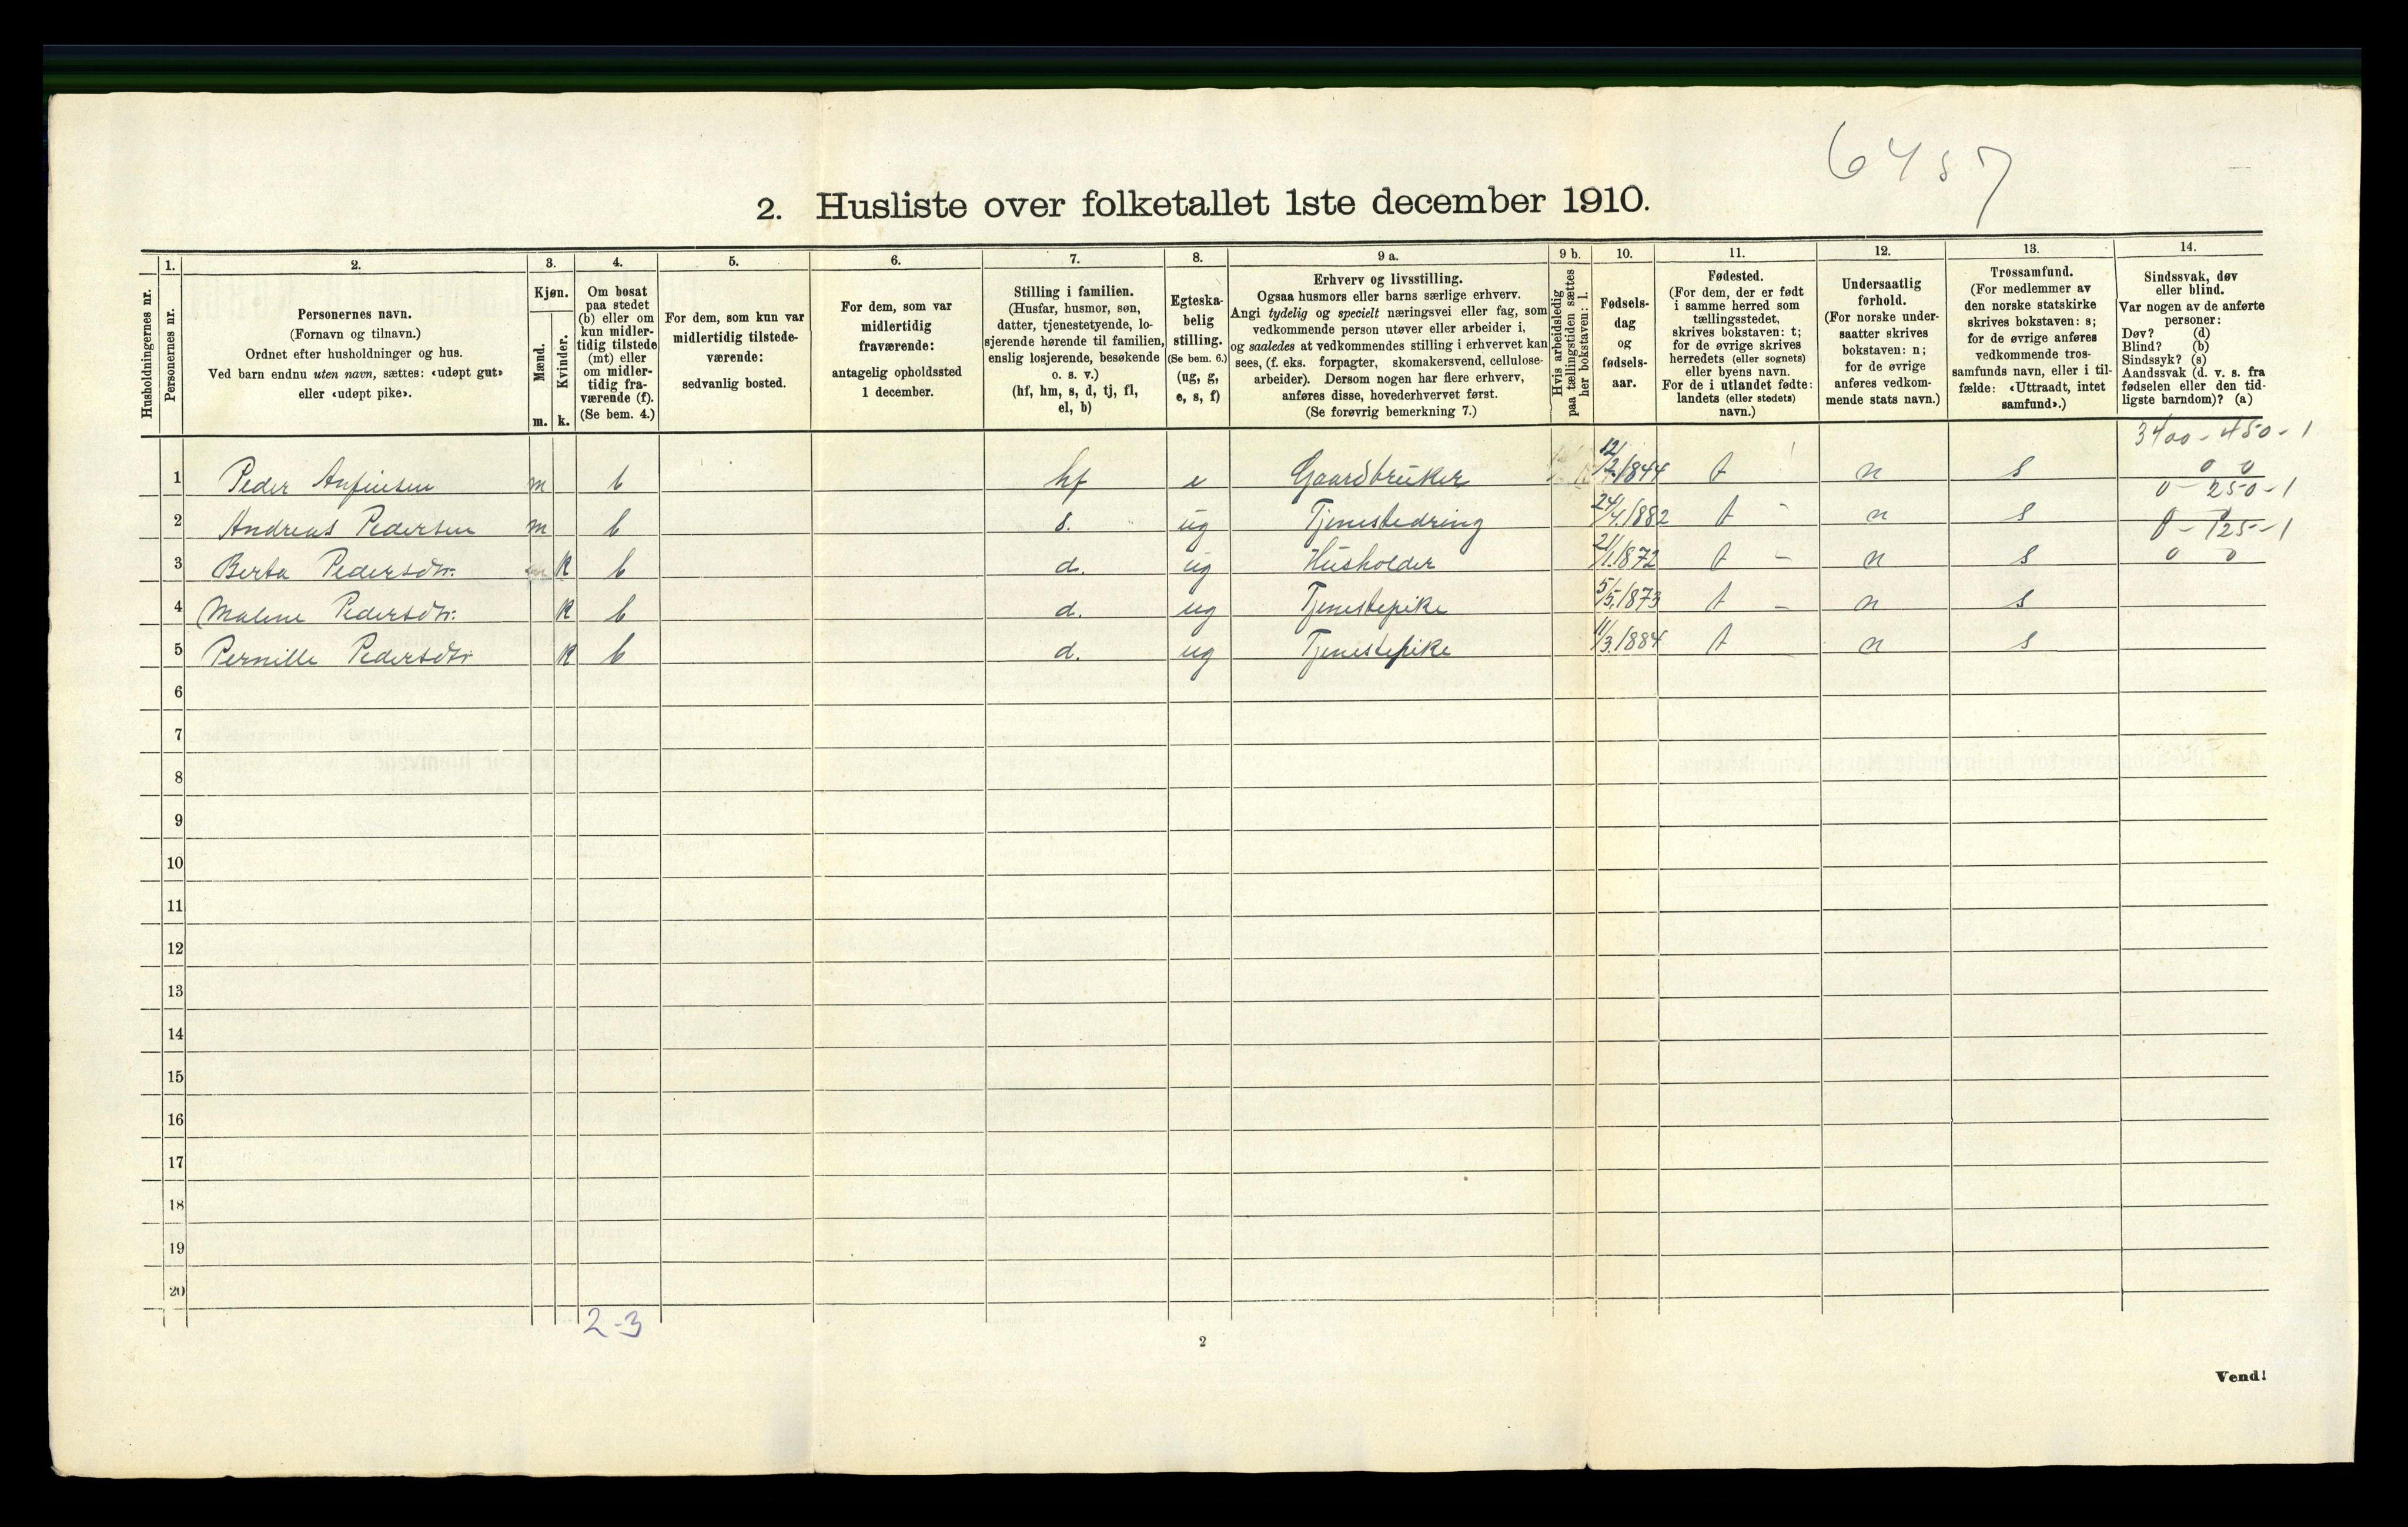 6457
2. Husliste over folketallet 1ste december 1910.
Husholdningernes nr.
1.
Personernes nr.
2.
Personernes navn.
(Fornavn og tilnavn.)
Ordnet efter husholdninger og hus.
Ved barn endnu uten navn, sættes: «udøpt gut»
eller «udøpt pike».
3.
Kjøn.
Mænd.
Kvinder.
m. k.
4.
Om bosat
paa stedet
(b) eller om
kun midler-
tidig tilstede
(mt) eller
om midler-
tidig fra-
værende (f).
(Se bem. 4.)
5.
For dem, som kun var
midlertidig tilstede-
værende:
sedvanlig bosted.
6.
For dem, som var
midlertidig
fraværende:
antagelig opholdssted
1 december.
7.
Stilling i familien.
(Husfar, husmor, søn,
datter, tjenestetyende, lo-
sjerende hørende til familien,
enslig losjerende, besøkende
o. s. v.)
(hf, hm, s, d, tj, fl,
el, b)
8.
Egteska-
belig
stilling.
(Se bem. 6.)
(ug, g,
e, s, f)
9 a.
Erhverv og livsstilling.
Ogsaa husmors eller barns særlige erhverv.
Angi tydelig og specielt næringsvei eller fag, som
vedkommende person utøver eller arbeider i,
og saaledes at vedkommendes stilling i erhvervet kan
sees, (f. eks. forpagter, skomakersvend, cellulose-
arbeider). Dersom nogen har flere erhverv,
anføres disse, hovederhvervet først.
(Se forøvrig bemerkning 7.)
9 b.
Hvis arbeidsledig
paa tællingstiden sættes
her bokstaven: l.
10.
Fødsels-
dag
og
fødsels-
aar.
11.
Fødested.
(For dem, der er født
i samme herred som
tællingsstedet,
skrives bokstaven: t;
for de øvrige skrives
herredets (eller sognets)
eller byens navn.
For de i utlandet fødte:
landets (eller stedets)
navn.)
12.
Undersaatlig
forhold.
(For norske under-
saatter skrives
bokstaven: n;
for de øvrige
anføres vedkom-
mende stats navn.)
13.
Trossamfund.
(For medlemmer av
den norske statskirke
skrives bokstaven: s;
for de øvrige anføres
vedkommende tros-
samfunds navn, eller i til-
fælde: «Uttraadt, intet
samfund».)
14.
Sindssvak, døv
eller blind.
Var nogen av de anførte
personer:
Døv? (d)
Blind? (b)
Sindssyk? (s)
Aandssvak (d. v. s. fra
fødselen eller den tid-
ligste barndom)? (a)
3400-450-1
1 Peder Anfinsen m b hf e Gaardbruker 12/2.1844 t n s 0 0
0-250-1
2 Andreas Pedersen m b s. ug Tjenestedreng 24/4.1882 t - n s
0-125-1
3 Berta Pedersdtr. k b d. ug Husholder 21/1.1872 t - n s 0 0
4 Malene Pedersdtr. k b d. ug Tjenestepike 5/5.1873 t - n s
5 Pernille Pedersdtr k b d. ug Tjenestepike 11/3.1884 t n s
6
7
8
9
10
11
12
13
14
15
16
17
18
19
20
2-3
2
Vend!